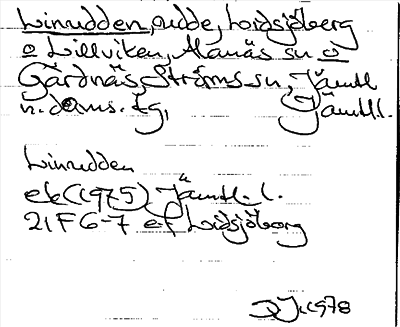 Linudden, udde, Lordsjöberg
o Lillviken, Alanäs sn o
Gärdnäs, Ströms sn, Jämtl
n. doms. fg, Jämtl.l.
Linudden
ek (1975) Jämtl. l.
21F 6-7 ef Lordsjöberg
1978